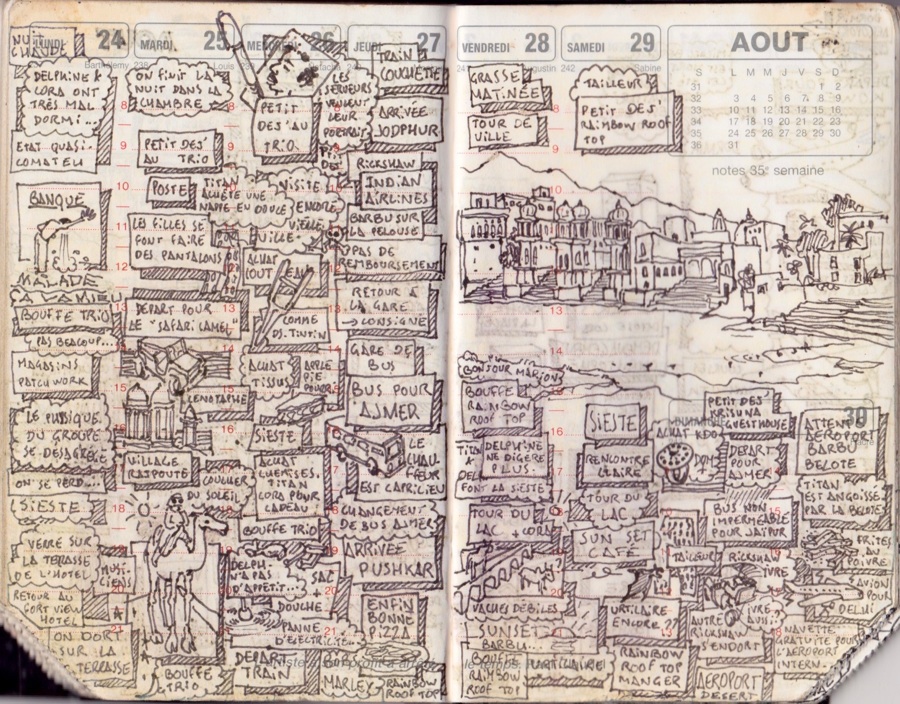 24
MARDI
25
26
JEUDI
27
VENDREDI
28
SAMEDI
29
AOUT
S L M M J V S D
31 1 2
32 3 4 5 6 7 8 9
33 10 11 12 13 14 15 16
34 17 18 19 20 21 22 23
35 24 25 26 27 28 29 30
36 31
notes 35e semaine
30
DELPHINE &
LORA ONT
TRÈS MAL
DORMI...
ETAT QUASI-
COMATEU
BANQUE
MALADE
A LA MIE
BOUFFE TRIO
PAS BEAUCOUP...
MAGASINS
PATCHWORK
LE PHYSIQUE
DU GROUPE
SE DESAGREGE
ON SE PERD...
SIESTE
VERRE SUR
LA TERRASSE
DE L'HOTEL
MUSI-
CIENS
RETOUR AU
FORT VIEW
HOTEL
ON DORT
SUR LA
TERRASSE
ON FINIT LA
NUIT DANS LA
CHAMBRE
PETIT DES'
AU TRIO
POSTE
LES FILLES SE
FONT FAIRE
DES PANTALONS
DEPART POUR
LE "SAFARI CAMEL"
CENOTAPHE
VILLAGE
RAJPOUTE
COUCHER
DU SOLEIL
BOUFFE
TRIO
PETIT
DES' AU
TRIO
LES
SERVEURS
VEULENT
LEUR
PORTRAIT
TITAN
ACHETE UNE
NAPPE EN DOUCE
VISITE
ENCORE
VIEILLE
VILLE
ACHAT
COUTEAU
COMME
DS. TINTIN
ACHAT
TISSUS
APPLE
PIE
POURRI
SIESTE
ACHAT
CHEMISES.
TITAN
LORA POUR
CADEAU
BOUFFE TRIO
DELPH.
N'A PAS
D'APPETIT...
SAC
+
DOUCHE
PANNE
D'ELECTRICITE
DEPART
TRAIN
TRAIN
COUCHETTE
ARRIVEE
JODHPUR
RICKSHAW
INDIAN
AIRLINES
BARBU SUR
LA PELOUSE
PAS DE
REMBOURSEMENT
RETOUR A
LA GARE
→ CONSIGNE
GARE DE
BUS
BUS POUR
AJMER
LE
CHAU-
FFEUR
EST CAPRICIEU
CHANGEMENT
DE BUS AJMER
ARRIVEE
PUSHKAR
ENFIN
BONNE
PIZZA
BOB
MARLEY
RAINBOW
ROOF TOP
GRASSE
MATINEE
TOUR DE
VILLE
BONJOUR MARION
BOUFFE
RAINBOW
ROOF TOP
DELPHINE
NE DIGERE
PLUS.
TITA
&
DEL
FONT LA SIESTE
TOUR DU
LAC + LORA
VACHES DEBILES
SUNSET
BARBU...
BOUFFE
RAINBOW
ROOF TOP
URTICAIRE!
TAILLEUR
PETIT DES'
RAINBOW ROOF
TOP
SIESTE
RENCONTRE
CLAIRE
TOUR DU
LAC
SUN SET
CAFÉ
URTICAIRE
ENCORE
RAINBOW
ROOF TOP
MANGER
ACHAT KDO
TAILLEUR
PETIT DES'
KRISHNA
GUEST HOUSE
DEPART
POUR
AJMER
BUS NON
IMPERMEABLE
POUR JAIPUR
RICKSHAW
IVRE
AUTRE
RICKSHAW
IVRE
AUSSI
S'ENDORT
AEROPORT
DESERT
ATTENTE
AEROPORT
BARBU
BELOTE
TITAN
EST ANGOISSE
PAR LA BELOTE
FRITES
AU
POIVRE
AVION
POUR
DELHI
NAVETTE
GRATUITE POUR
L'AEROPORT
INTERN...